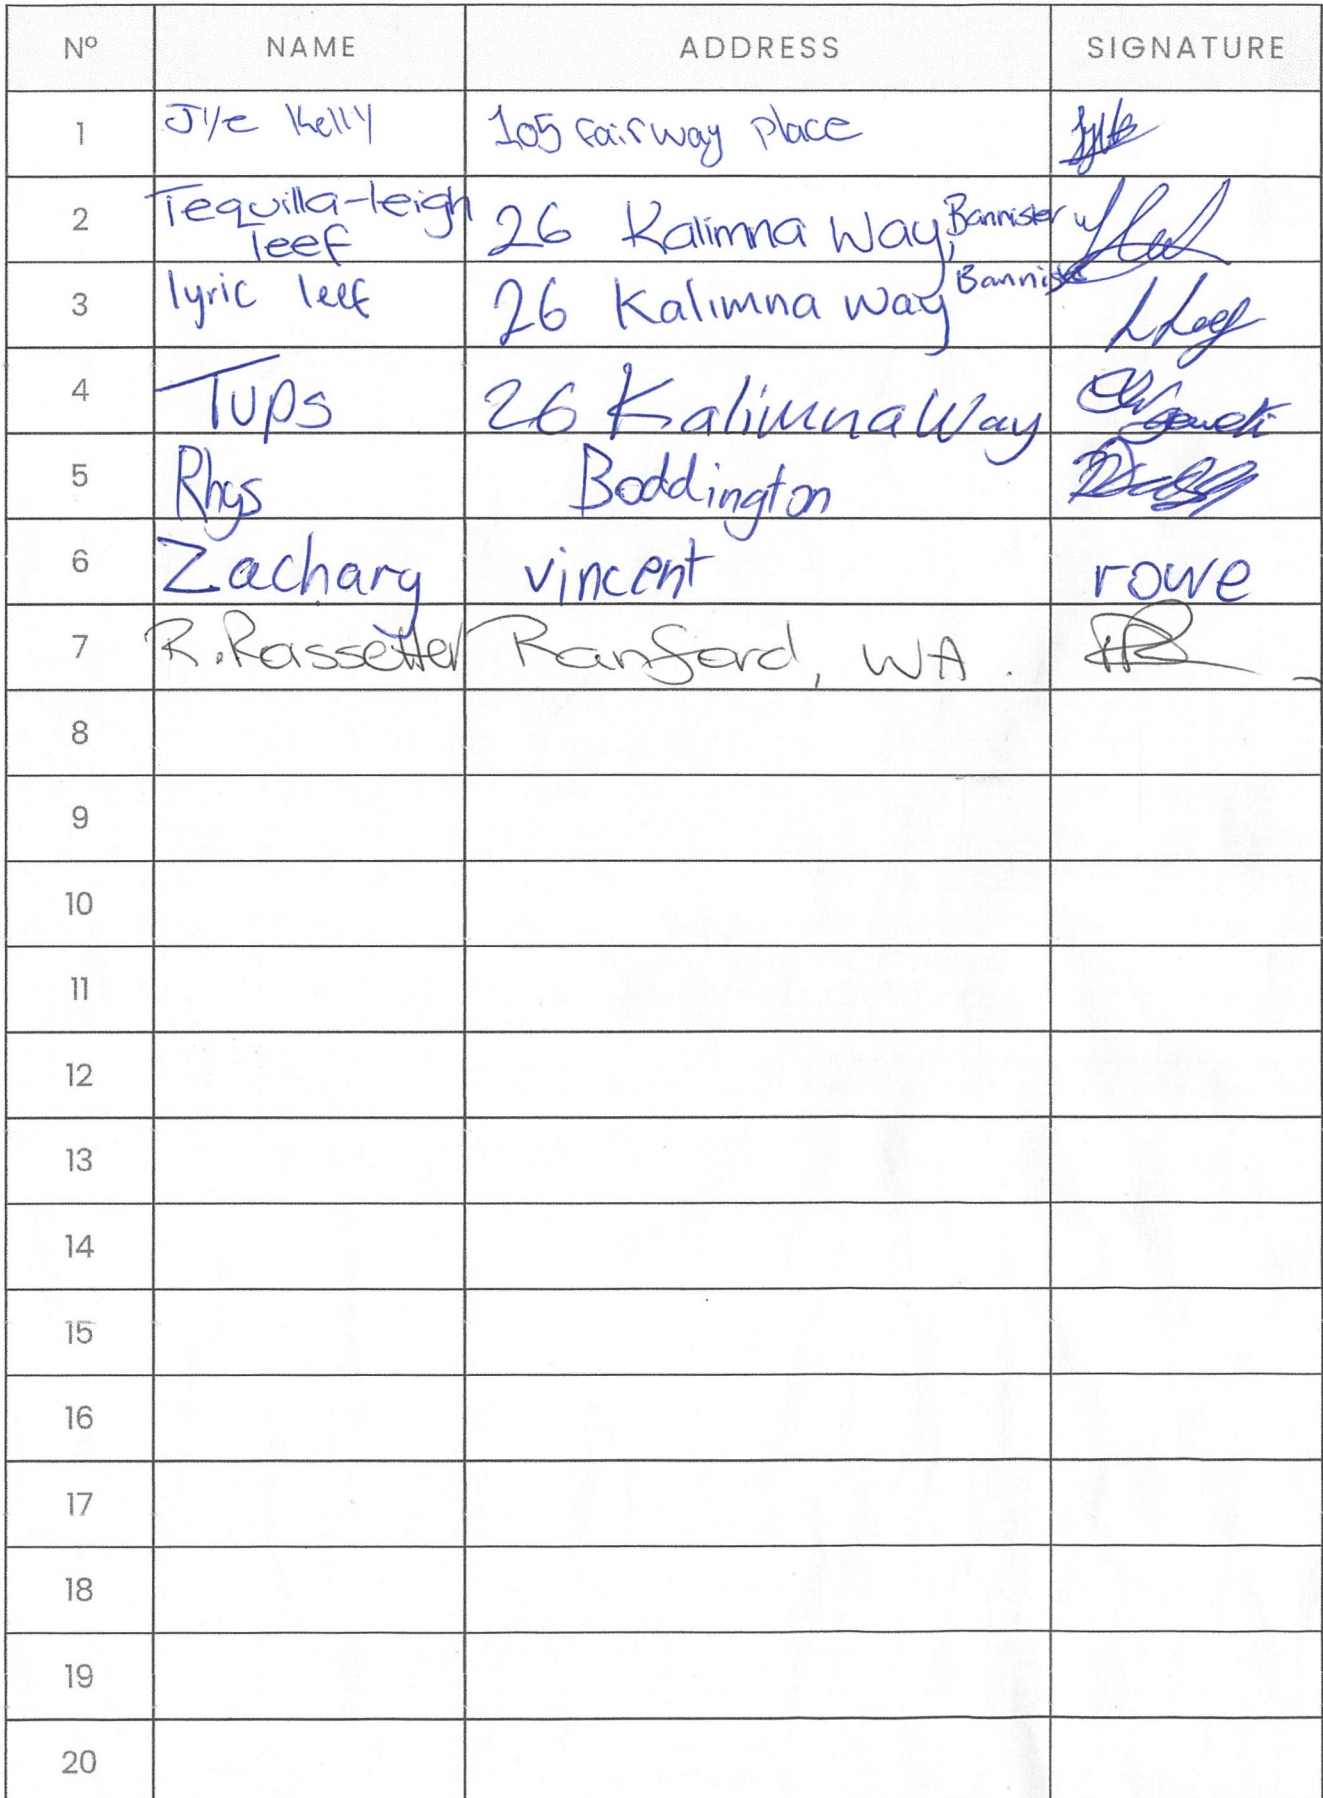 Nº NAME ADDRESS SIGNATURE
1 Jye Kelly 105 fairway place
2 Tequilla-leigh leef 26 Kalimna Way, Bannister
3 lyric leef 26 Kalimna way Bannister
4 Tups 26 Kalimna Way
5 Rhys Boddington
6 Zachary vincent rowe
7 R. Rassetter Ranford, WA.
8
9
10
11
12
13
14
15
16
17
18
19
20